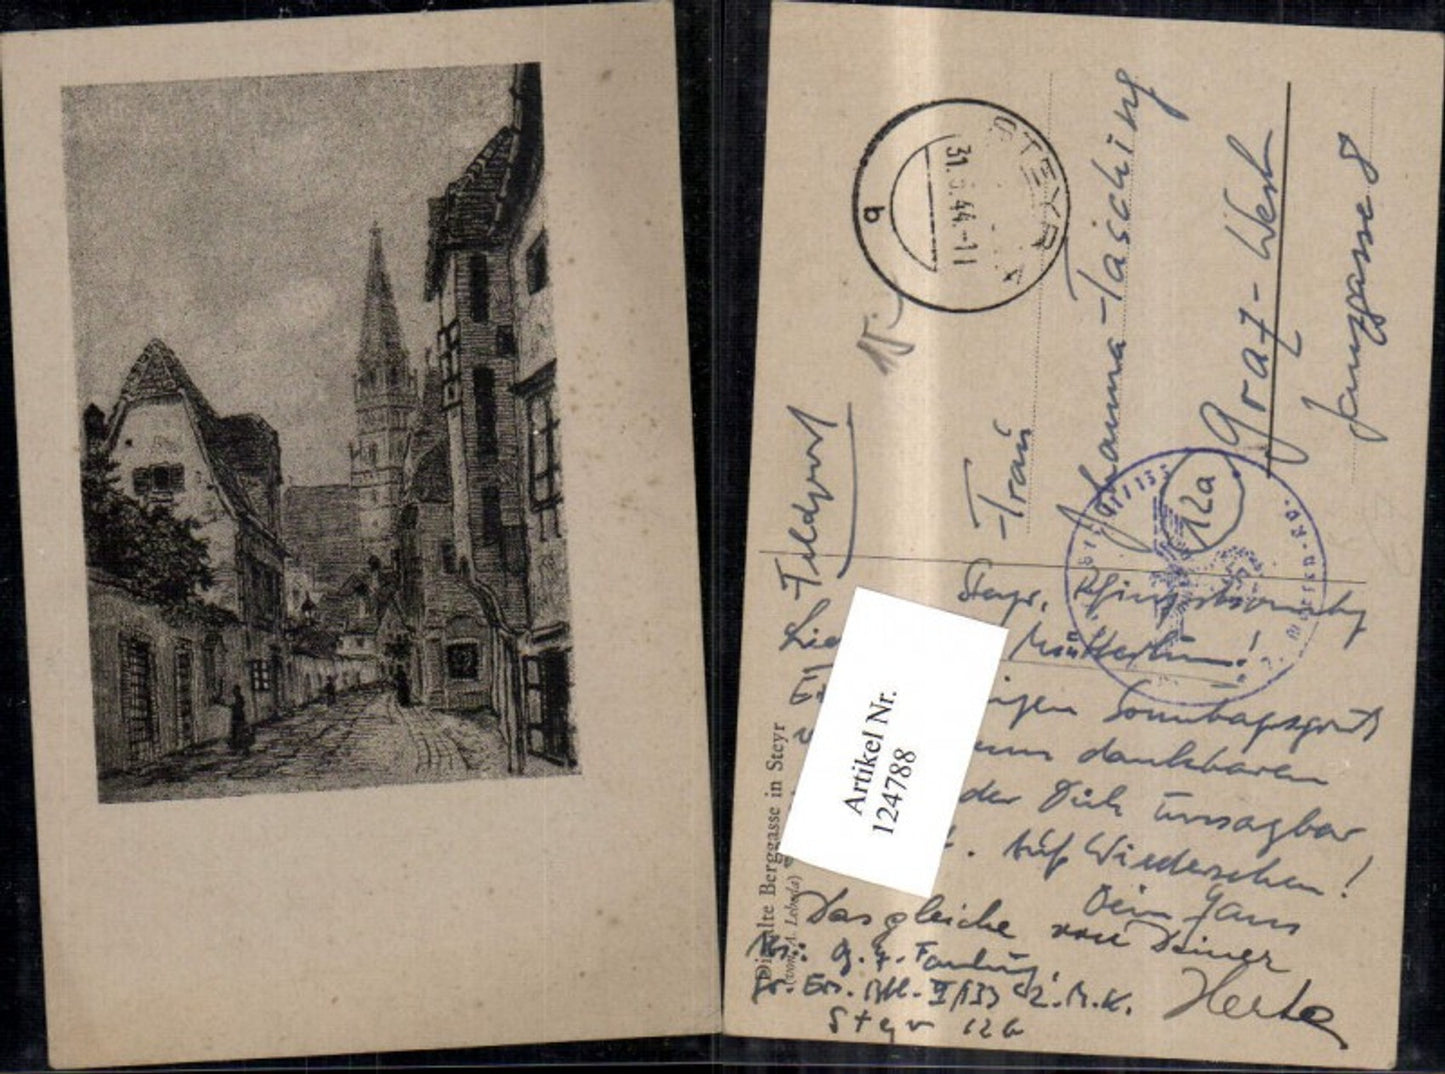 STEYR
31. .44.-11
b
15.-
Feldpost
Frau
Johanna Tasching
Graz-West
Janzgasse 8
12a
Steyr, Pfingstsonntag
Mütterlein!
Sonntagsgruß
dankbaren
der Dich unsagbar
. Auf Wiedersehen!
Dein Hans
Das gleiche von Deiner
Herta
Abs.: G. F. 
Gr. Ers. Btl. II/133 2. M. K.
Steyr 12b
Die alte Berggasse in Steyr
Artikel Nr.
124788